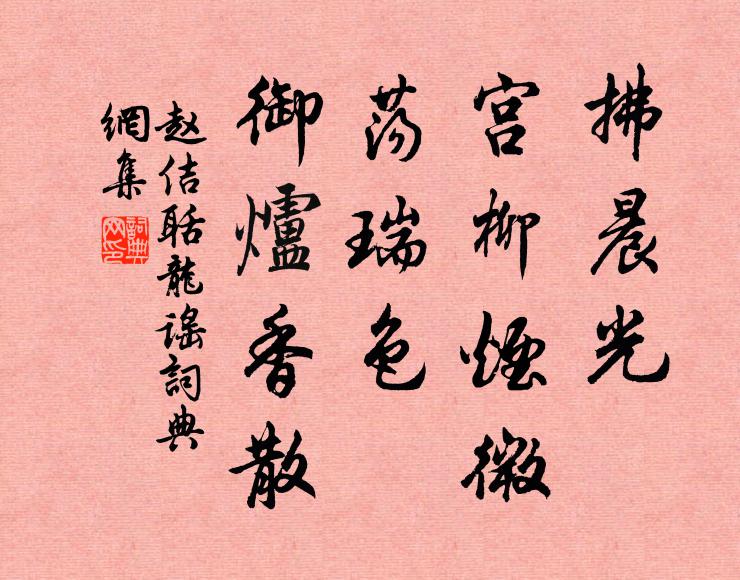 拂晨光
宫柳煙微
荡瑞色
御爐香散
赵佶聒龍谣詞典
網集
詞典
网印